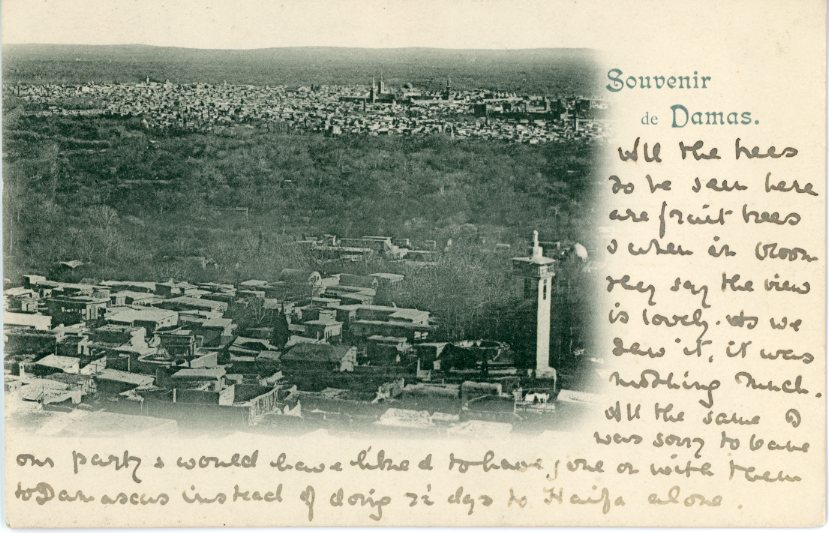 Souvenir
de Damas.
All the trees
to be seen here
are fruit trees
& when in bloom
they say the view
is lovely. As we
saw it, it was
nothing much.
All the same I
was sorry to leave
our party & would have liked to have gone on with them
to Damascus instead of doing days to Haifa alone.